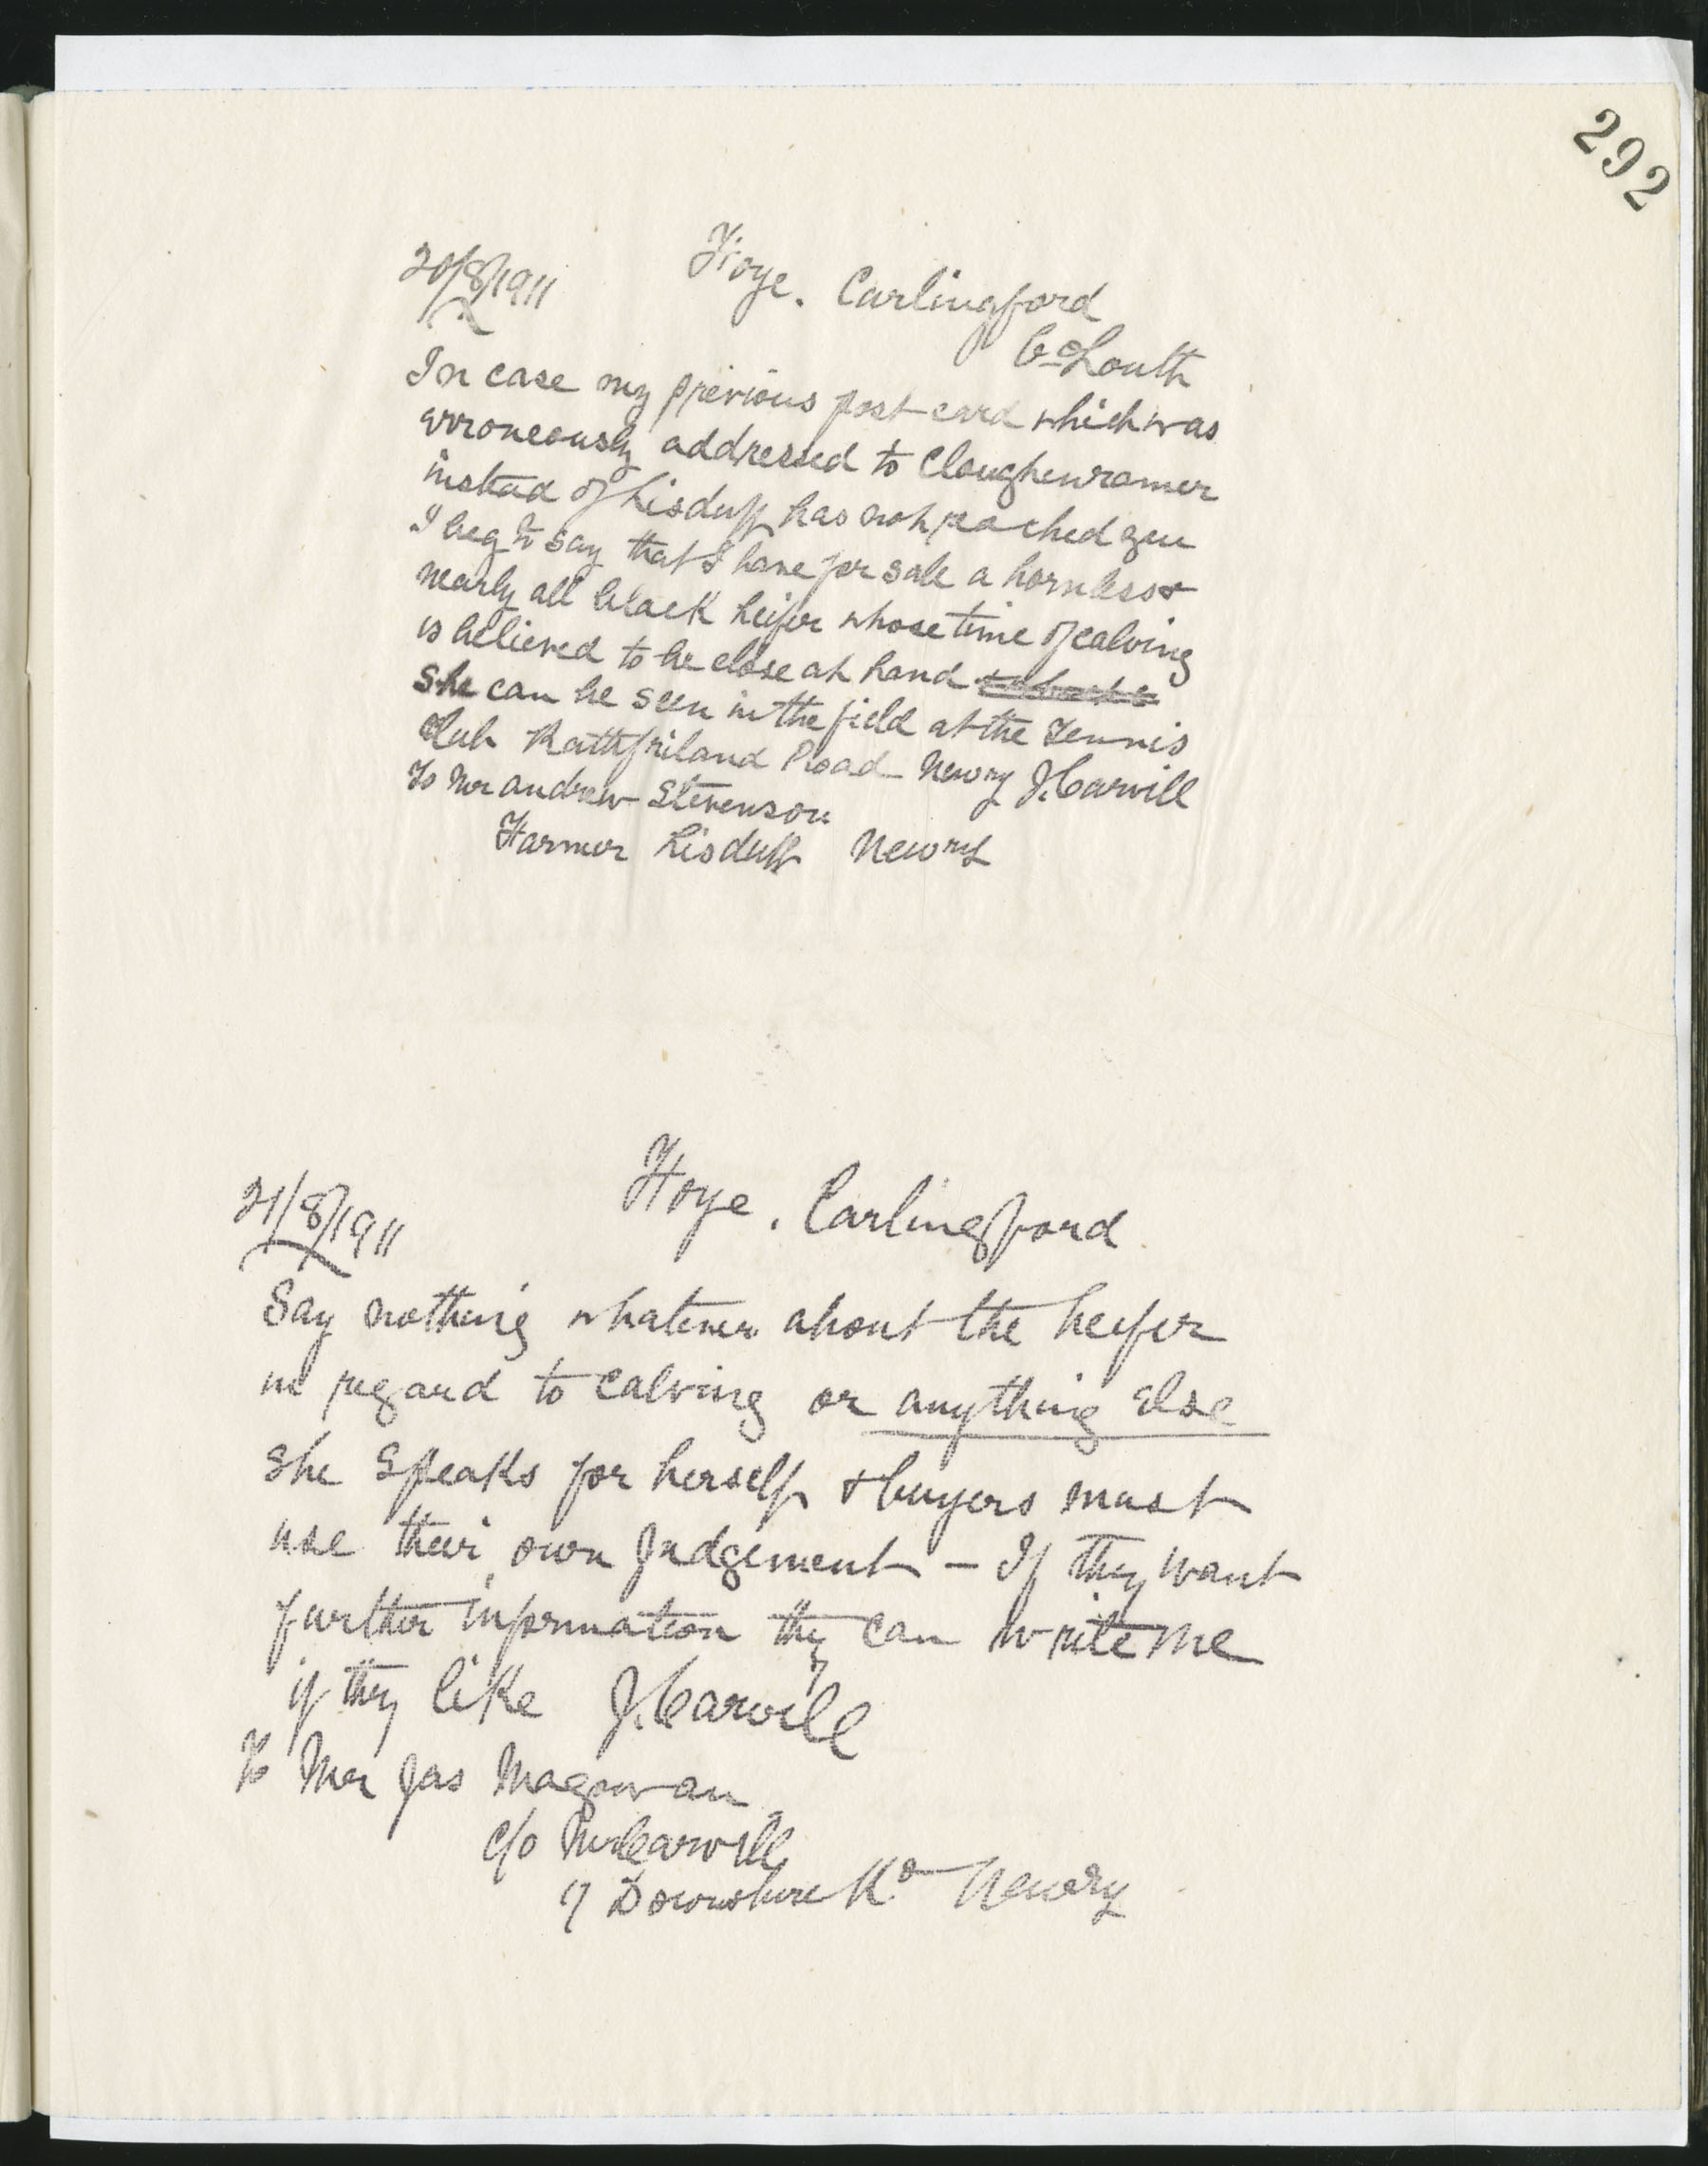 292
20/8/1911 Hoye. Carlingford
Co Louth
In case my previous post card which was
erroneously addressed to Cloughenramer
instead of Lisduff has not reached you
I beg to say that I have for sale a hornless &
nearly all black heifer whose time of calving
is believed to be close at hand
She can be seen in the field at the Tennis
Club Rathfriland Road Newry J. Carvill
To Mr Andrew Stevenson
Farmer Lisduff Newry
21/8/1911 Hoye. Carlingford
Say nothing whatever about the heifer
in regard to calving or anything else
She speaks for herself & buyers must
use their own judgement – If they want
further information they can write me
if they like J. Carvill
To Mr Jas Magowan
c/o Mr Carvill
7 Downshire Rd Newry